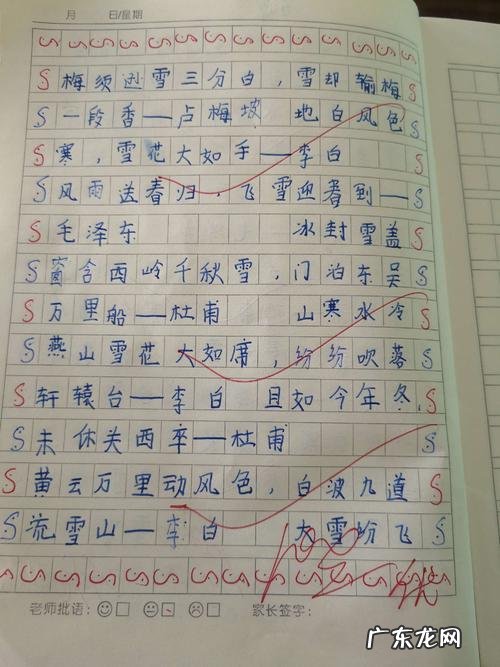 月 日/星期
梅须逊雪三分白，雪却输梅
一段香——卢梅坡 地白风色
寒，雪花大如手——李白
风雨送春归，飞雪迎春到——
毛泽东 冰封雪盖
窗含西岭千秋雪，门泊东吴
万里船——杜甫 山寒水冷
燕山雪花大如席，纷纷吹落
轩辕台——李白 且如今年冬，
未休关西卒——杜甫
黄云万里动风色，白波九道
流雪山——李白 大雪纷飞
100
老师批语： 家长签字：
广东龙网